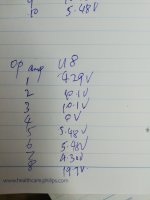 10 5.48V
op amp U8
1 4.29V
2 10.1V
3 10.1V
4 0V
5 5.48V
6 5.48V
7 9.30V
8 19.7V
www.healthcare.philips.com